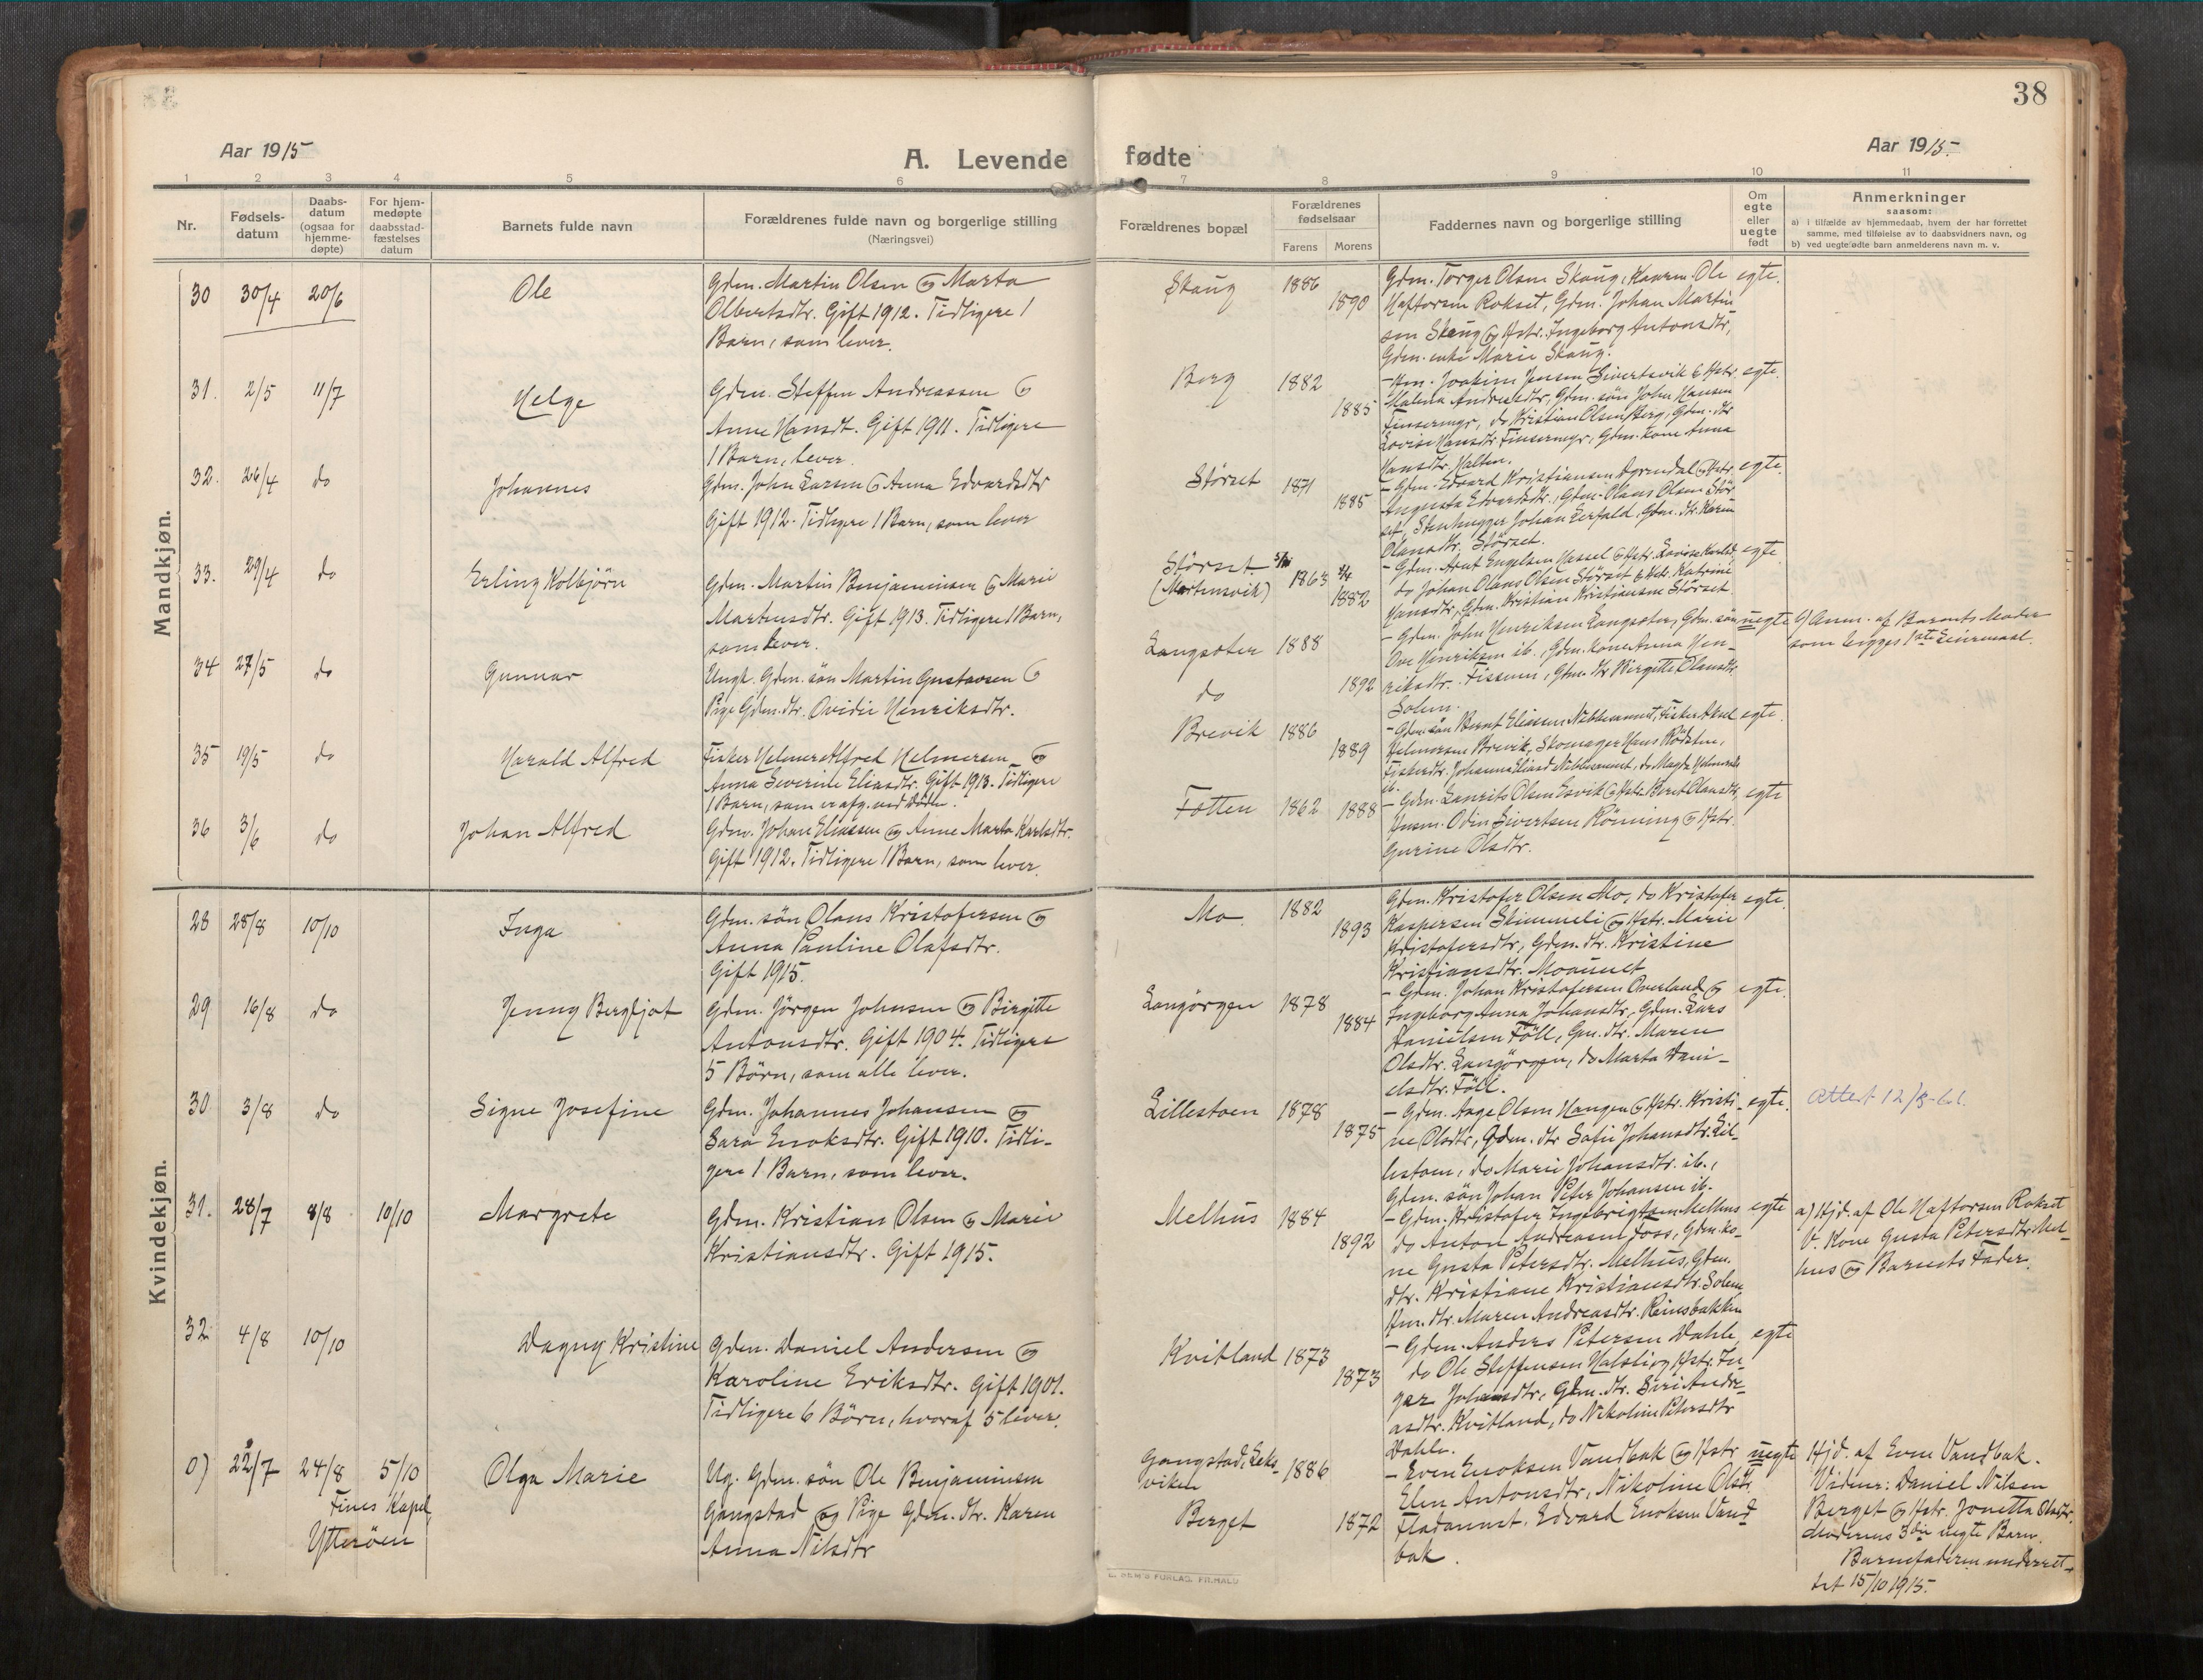 38
Aar 1915
A. Levende fødte
Aar 1915
1 2 3 4 5 6 7 8 9 10 11
Nr.
Fødsels-
datum
Daabs-
datum
(ogsaa for
hjemme-
døpte)
For hjem-
medøpte
daabsstad-
fæstelses
datum
Barnets fulde navn
Forældrenes fulde navn og borgerlige stilling
(Næringsvei)
Forældrenes bopæl
Forældrenes
fødselsaar
Farens
Morens
Faddernes navn og borgerlige stilling
Om
egte
eller
uegte
født
Anmerkninger
saasom:
a) i tilfælde av hjemmedaab, hvem der har forrettet
samme, med tilføielse av to daabsvidners navn, og
b) ved uegte fødte barn anmelderens navn m. v.
Mandkjøn.
30 30/4 20/6 Ole
Gdm. Martin Olsen og Marta
Olbertsdtr. Gift 1912. Tidligere 1
Barn, som lever.
Skaug 1886
1890
Gdm. Torger Olsen Skaug, Ole
Haftorsen Rokset, Gdm. Johan Martin
sen Skaug og Hstr. Ingeborg Antonsdtr,
Gdm. enke Marie Skaug.
egte.
31. 2/5 11/7 Helge
Gdm. Steffen Andreassen og
Anne Hansdt. Gift 1911. Tidligere
1 Barn, lever.
Berg 1882
1885
- Joakim Jensen Sivertsvik & Hstr.
Malena Andreasdtr, Gdm. søn John Hansen
Finsermyr, do Kristian Olsen Berg, Gdm. dtr
Lovise Hansdtr Finsermyr, Gdm. kone Anna
Hansdtr. Halten.
egte.
32. 26/4 do Johannes
Gdm. John Larsen og Anna Edvardsdtr
Gift 1912. Tidligere 1 Barn, som lever
Størset 1871
1885
- Gdm. Edvard Kristiansen og Hstr.
Augusta Edvardsdtr., Gdm. Olaus Olsen Stør
set, Stenhugger Johan Lerfald, Gdm. dtr. Karen
Olausdtr. Størset.
egte.
33. 29/4 do Erling Kolbjørn
Gdm. Martin Benjaminsen og Marie
Martinsdtr. Gift 1913. Tidligere 1 Barn,
som lever.
Størset
(Martinsvik) 1863
1882
- Gdm. Arnt Engelsen Hassel og Hstr. Lovise
do Johan Olaus Olsen Størset & Hstr. Katrine
Hansdtr, Gdm. Kristian Kristiansen Størset.
egte
34 27/5 do Gunnar
Ungk. Gdm. søn Martin Gustavsen og
Pige Gdm. dtr. Ovidie Henriksdtr.
Langsæter 1888
do 1892
- Gdm. John Henriksen Langsæter, Gdm. søn
Ove Henriksen ib., Gdm. kone Anna Hen-
riksdtr. Fissum, Gdm. dtr Birgitte Olausdtr
Solem.
uegte
b) Anm. af Barnets Moder
som begges 1ste Leiermaal.
35 19/5 do Harald Alfred
Fisker Helmer Alfred Helmersen og
Anna Severine Eliasdtr. Gift 1913. Tidligere
1 Barn, som er afg. ved døden.
Brevik 1886
1889
- Gdm. søn Bernt Eliassen Nebbesunnet, Fisker Aksel
Helmersen Brevik, Skomager Hans Rødsten,
Fiskerdtr. Johanna Eliasd Nebbesunnet, do Magda Helmersdtr
ib.
egte.
36 3/6 do Johan Alfred
Gdm. Johan Eliassen og Anne Marta Karlsdtr.
Gift 1912. Tidligere 1 Barn, som lever.
Fatten 1862 1888
- Gdm. Laurits Olsen Esvik og Hstr. Beret Olausdtr,
Husm. Odin Sivertsen Rønning og Hstr.
Gurine Olsdtr.
egte
Kvindekjøn.
28 28/8 10/10 Inga
Gdm. søn Olaus Kristofersen og
Anna Pauline Olafsdtr.
Gift 1915.
Mo 1882
1893
Gdm. Kristofer Olsen Mo, do Kristofer
Kaspersen Skimmeli og Hstr. Marie
Kristofersdtr, Gdm. dtr. Kristine
Kristiansdtr. Moaunet
egte.
29 16/8 do Jenny Bergljot
Gdm. Jørgen Johnsen og Birgitte
Antonsdtr. Gift 1904. Tidligere
5 Børn, som alle lever.
Langørgen 1878
1884
- Gdm. Johan Kristofersen Overland og
Ingeborg Anna Johansdtr, Gdm. Lars
Danielsen Føll, Gm. dtr. Maren
Olsdtr. Langørgen, do Marta Dani-
elsdtr. Føll.
egte.
30 3/8 do Signe Josefine
Gdm. Johannes Johansen og
Sara Enoksdtr. Gift 1910. Tidli-
gere 1 Barn, som lever.
Lillestøen 1878
1875
- Gdm. Aage Olsen Hangen og Hstr. Kristi-
ne Olsdtr, Gdm. dtr Sofie Johansdtr. Lil-
lestøen, do Marie Johansdtr. ib.,
Gdm. søn Johan Peter Johansen ib.
egte.
Attest 12/8-61.
31. 28/7 8/8 10/10 Margrete
Gdm. Kristian Olsen og Marie
Kristiansdtr. Gift 1915.
Melhus 1884
1892
- Gdm. Kristofer Ingebrigtsen Melhus
do Anton Andreasen Foss, Gdm. ko-
ne Gusta Petersdtr. Melhus, Gdm.
dtr. Kristiane Kristiansdtr. Solem,
Hm. dtr. Maren Andreasdtr. Reinsbakken
egte
a) Hjd. af Ole Haftorsen Rokset
V. Kone Gusta Petersdtr. Mel-
hus og Barnets Fader.
32. 4/8 10/10 Dagny Kristine
Gdm. Daniel Andersen og
Karoline Eriksdtr. Gift 1901.
Tidligere 6 Børn, hvoraf 5 lever.
Kvitland 1873
1873
- Gdm. Anders Petersen Dahle,
do Ole Steffensen Halsli og Hstr. In-
ger Johansdtr, Gdm. dtr. Siri Andre-
asdtr. Kvitland, do Nikoline Petersdtr
Dahle.
egte
0) 22/7 24/8 5/10
Fines Kapel,
Ytterøen
Olga Marie
Ug. Gdm. søn Ole Benjaminsen
Gangstad og Pige Gdm. dtr. Karen
Anna Nilsdtr
Gangstad, Leks-
viken 1886
Berget 1872
- Even Enoksen Vandbak og Hstr
Elen Antonsdtr, Nikoline Olsdt
Fladaunet, Edvard Enoksen Vand
bak.
uegte
Hjd. af Even Vandbak.
Vidner: Daniel Nilsen
Berget og Hstr. Jonetta Olsdtr.
Moderens 3die uegte Barn.
Barnefaderen underret-
tet 15/10 1915.